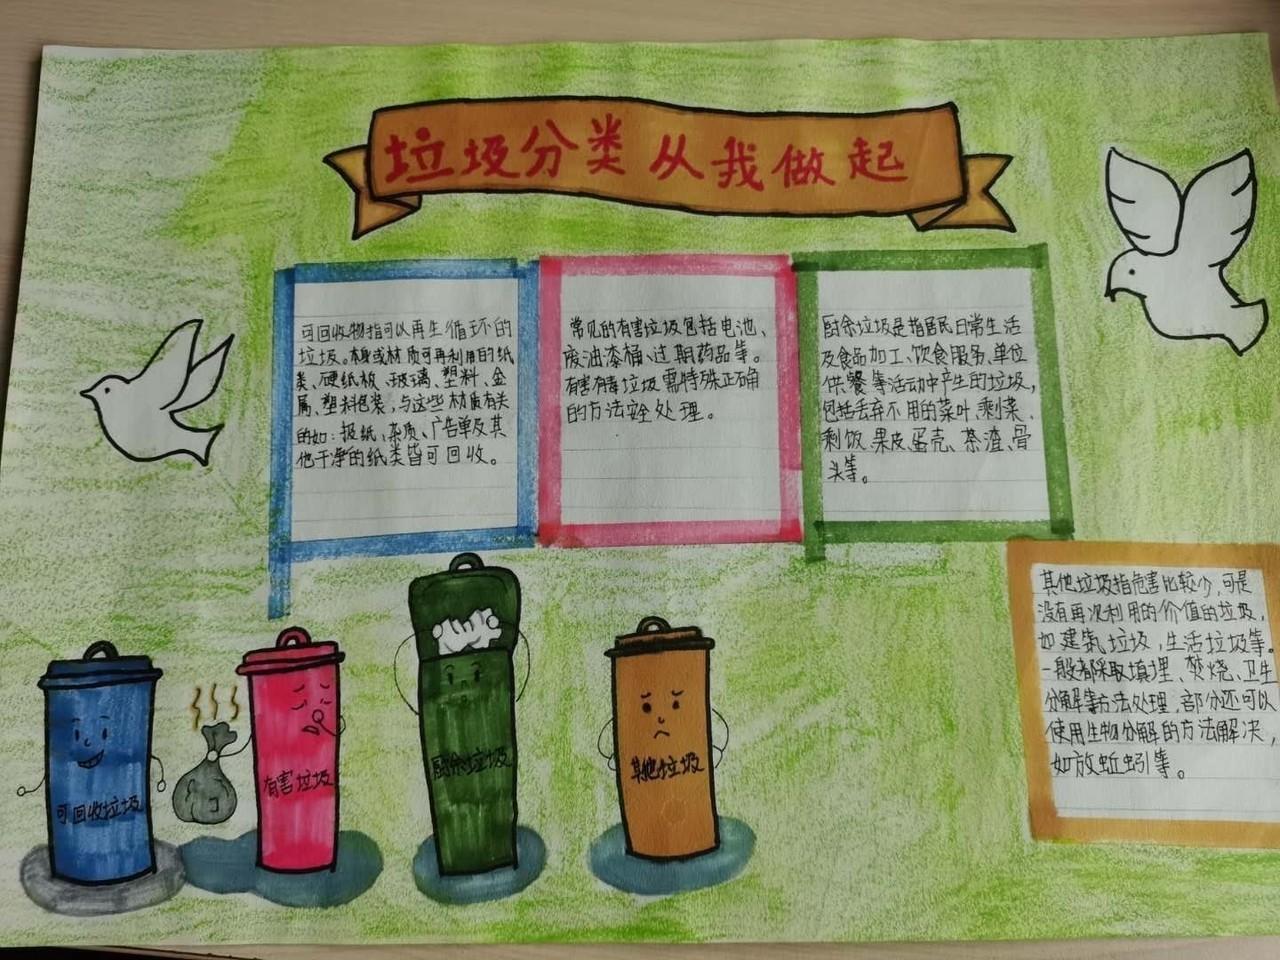 垃圾分类从我做起
可回收物指可以再生循环的
垃圾。本身或材质可再利用的纸
类、硬纸板、玻璃、塑料、金
属、塑料包装,与这些材质有关
的如:报纸、杂质、广告单及其
他干净的纸类皆可回收。
常见的有害垃圾包括电池、
废油漆桶、过期药品等。
有害有毒垃圾需特殊正确
的方法安全处理。
厨余垃圾是指居民日常生活
及食品加工、饮食服务、单位
供餐等活动中产生的垃圾,
包括丢弃不用的菜叶、剩菜、
剩饭、果皮、蛋壳、茶渣、骨
头等。
其他垃圾指危害比较少,可是
没有再次利用的价值的垃圾,
如建筑垃圾,生活垃圾等。
一般都采取填埋、焚烧、卫生
分解等方法处理,部分还可以
使用生物分解的方法解决,
如放蚯蚓等。
可回收垃圾
有害垃圾
厨余垃圾
其他垃圾